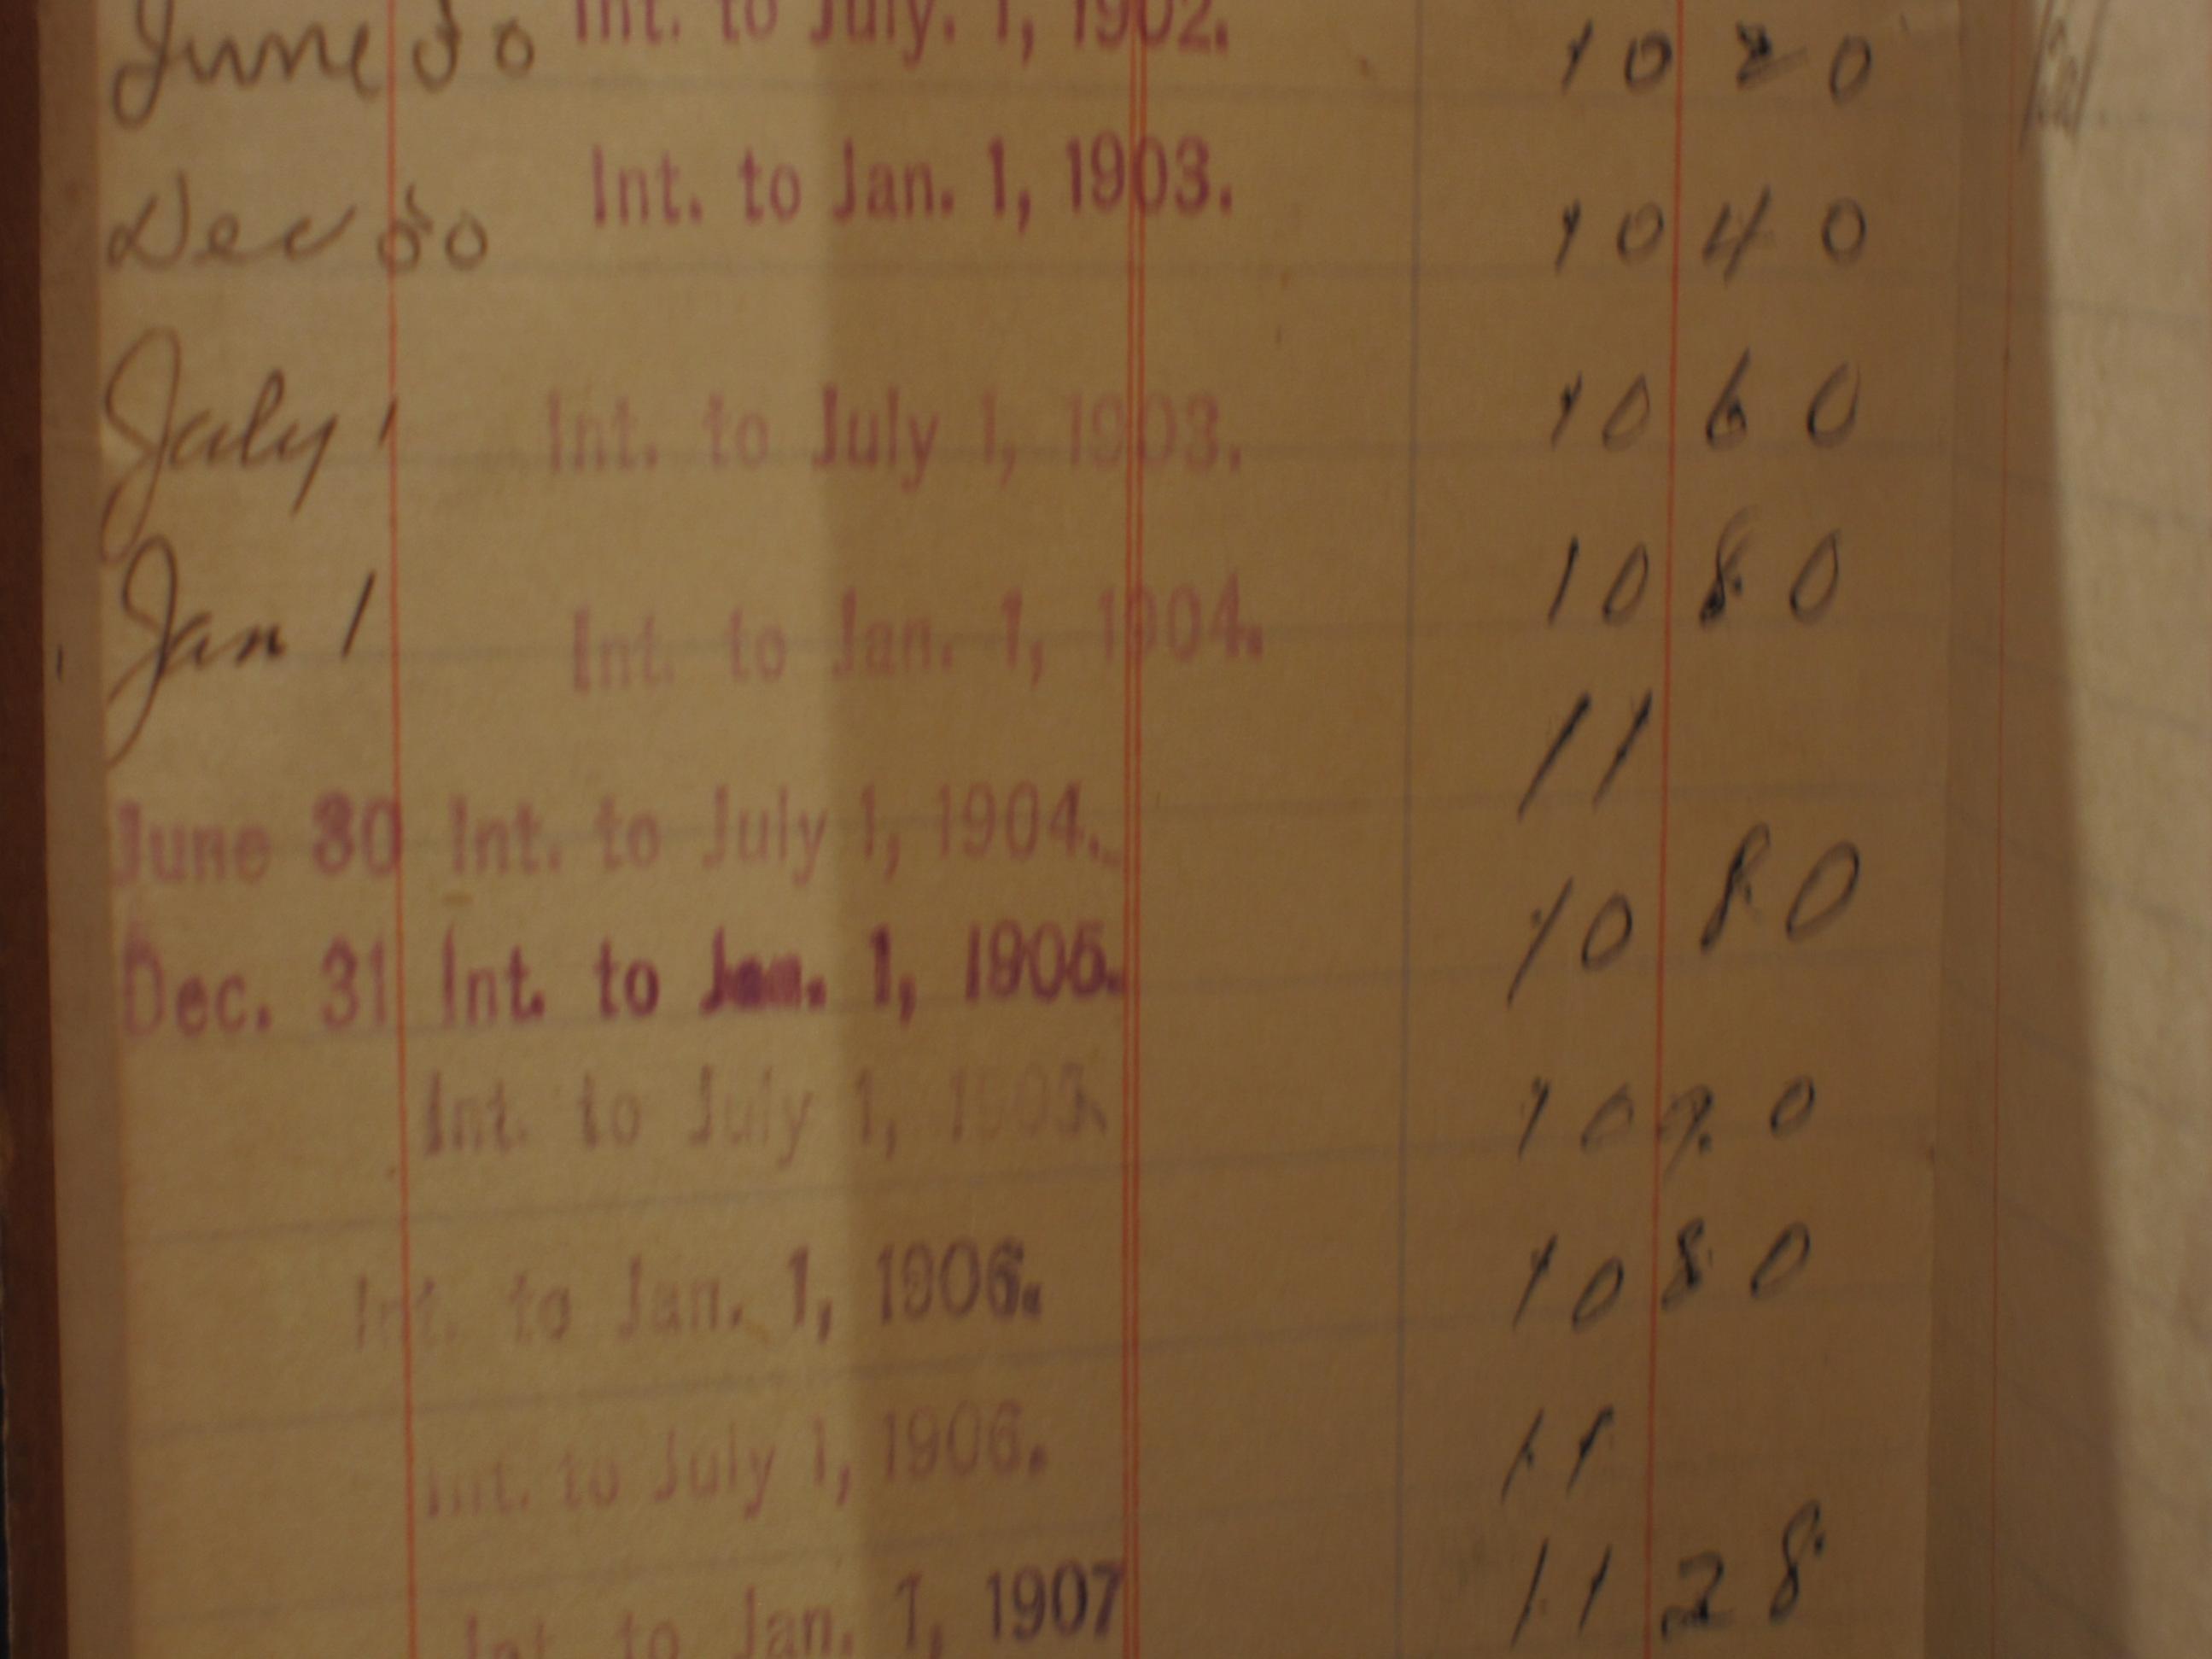 June 30 Int. to July. 1, 1902. 10 20
Dec 30 Int. to Jan. 1, 1903. 10 40
July 1 Int. to July 1, 1903. 10 60
Jan 1 Int. to Jan. 1, 1904. 10 80
June 30 Int. to July 1, 1904. 11
Dec. 31 Int. to Jan. 1, 1905. 10 80
Int. to July 1, 10 90
Int. to Jan. 1, 1906. 10 80
Int. to July 1, 1906. 11
Int. to Jan. 1, 1907 11 28